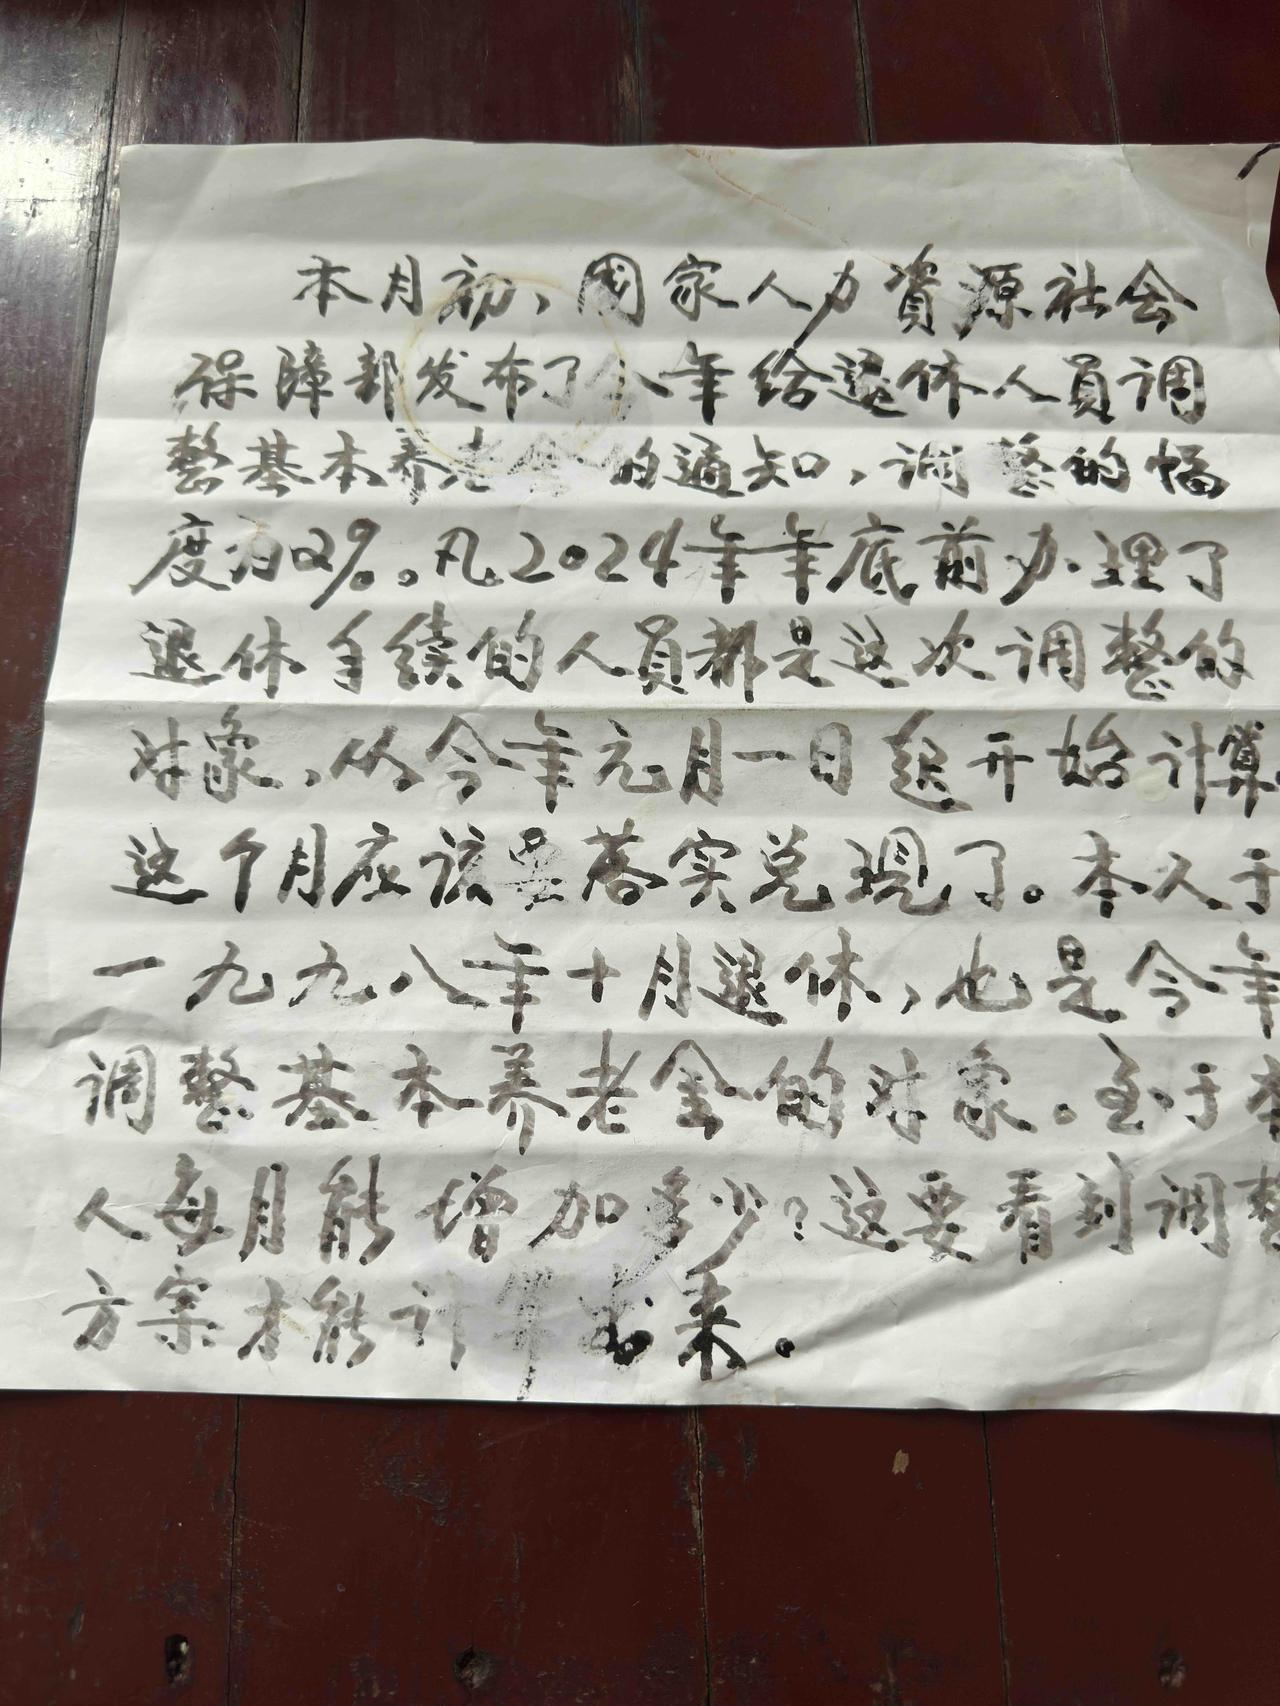 本月初，國家人力資源社会
保障部发布了今年给退休人员调
整基本养老金的通知，调整的幅
度为2%。凡2024年年底前办理了
退休手续的人员都是这次调整的
对象，从今年元月一日起开始计算。
这个月应该要落实兑现了。本人于
一九九八年十月退休，也是今年
调整基本养老金的对象。至于本
人每月能增加多少？这要看到调整
方案才能计算出来。